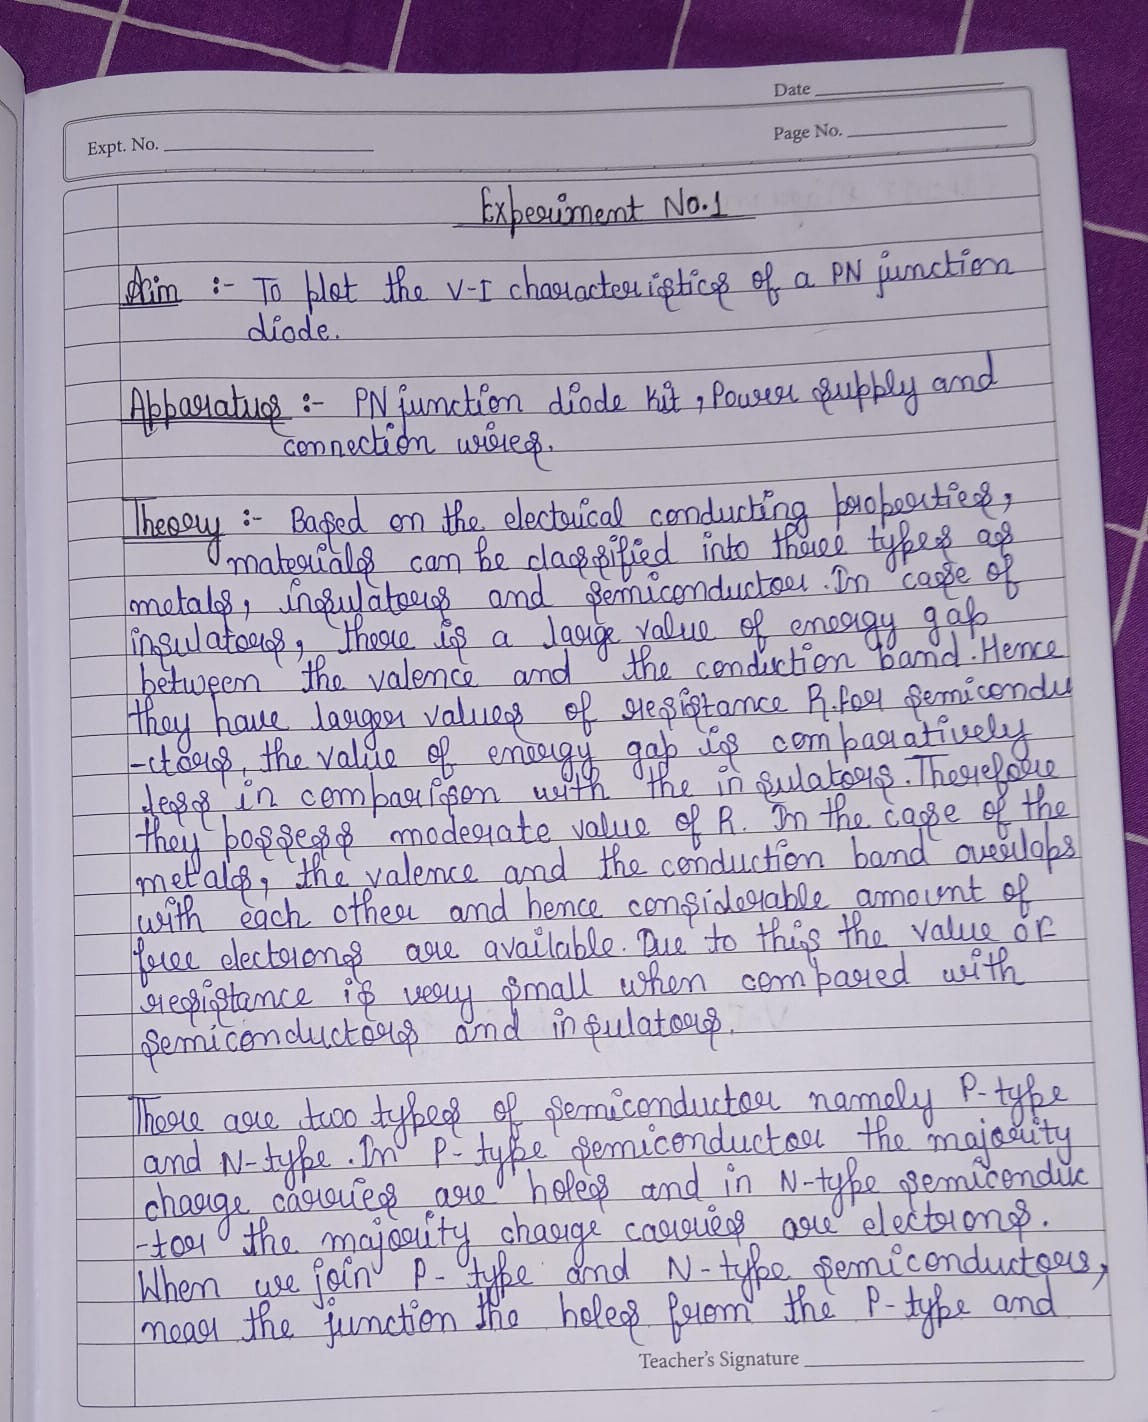 Date
Expt. No.
Page No.
Experiment No.1
Aim :- To plot the V-I characteristics of a PN junction
diode.
Apparatus :- PN junction diode kit, Power supply and
connection wires.
Theory :- Based on the electrical conducting properties,
materials can be classified into three types as
metals, insulators and semiconductor. In case of
insulators, there is a large value of energy gap
between the valence and the conduction band. Hence
they have larger values of resistance R. for semicondu
-ctors, the value of energy gap is comparatively
less in comparison with the insulators. Therefore
they possess moderate value of R. In the case of the
metals, the valence and the conduction band overlaps
with each other and hence considerable amount of
free electrons are available. Due to this the value or
resistance is very small when compared with
semiconductors and insulators.
There are two types of semiconductor namely P-type
and N-type. In P-type semiconductor the majority
charge carries are holes and in N-type semiconduc
-tor the majority charge carries are electrons.
When we join P-type and N-type semiconductors,
near the junction the holes from the P-type and
Teacher's Signature